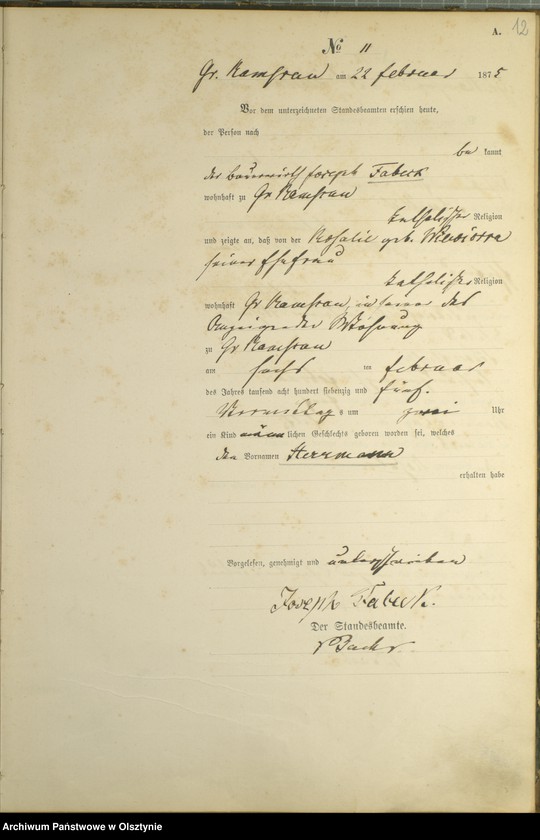 A.
12
№ 11
Gr. Ramsau am 22 Februar 1875
Vor dem unterzeichneten Standesbeamten erschien heute,
der Person nach
bekannt
der Joseph Fabeck
wohnhaft zu Gr Ramsau
katholischer Religion
und zeigte an, daß von der Rosalie geb.
seiner Ehefrau
katholischer Religion
wohnhaft Gr Ramsau, in seiner des
Anzeigenden Wohnung
zu Gr Ramsau
am sechs im Februar
des Jahres tausend acht hundert siebenzig und fünf.
Vormittags um zwei Uhr
ein Kind männlichen Geschlechts geboren worden sei, welches
den Vornamen Herrmann
erhalten habe
Vorgelesen, genehmigt und unterschrieben
Joseph Fabeck.
Der Standesbeamte.
Archiwum Państwowe w Olsztynie